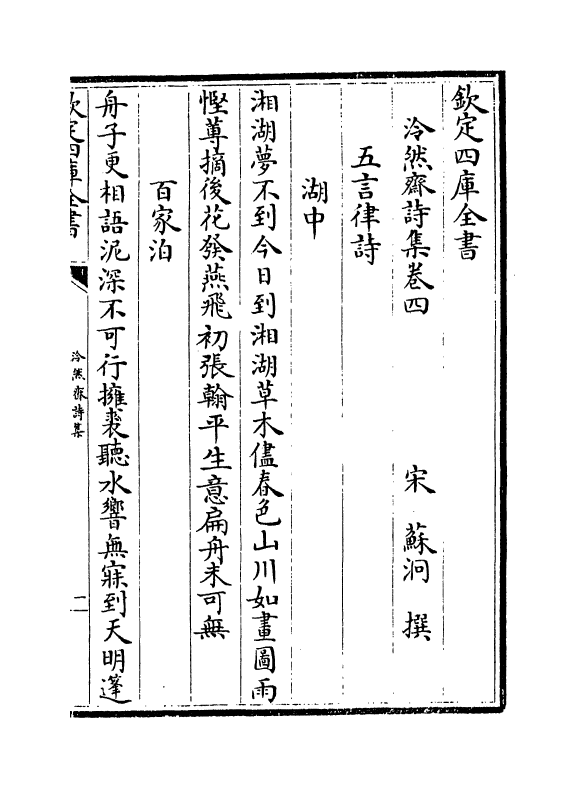 欽定四庫全書
泠然齋詩集卷四
宋 蘇泂 撰
五言律詩
湖中
湘湖夢不到今日到湘湖草木儘春色山川如畫圖雨
慳蓴摘後花發燕飛初張翰平生意扁舟未可無
百家泊
舟子更相語泥深不可行擁裘聽水響無寐到天明蓬
欽定四庫全書
泠然齋詩集
二